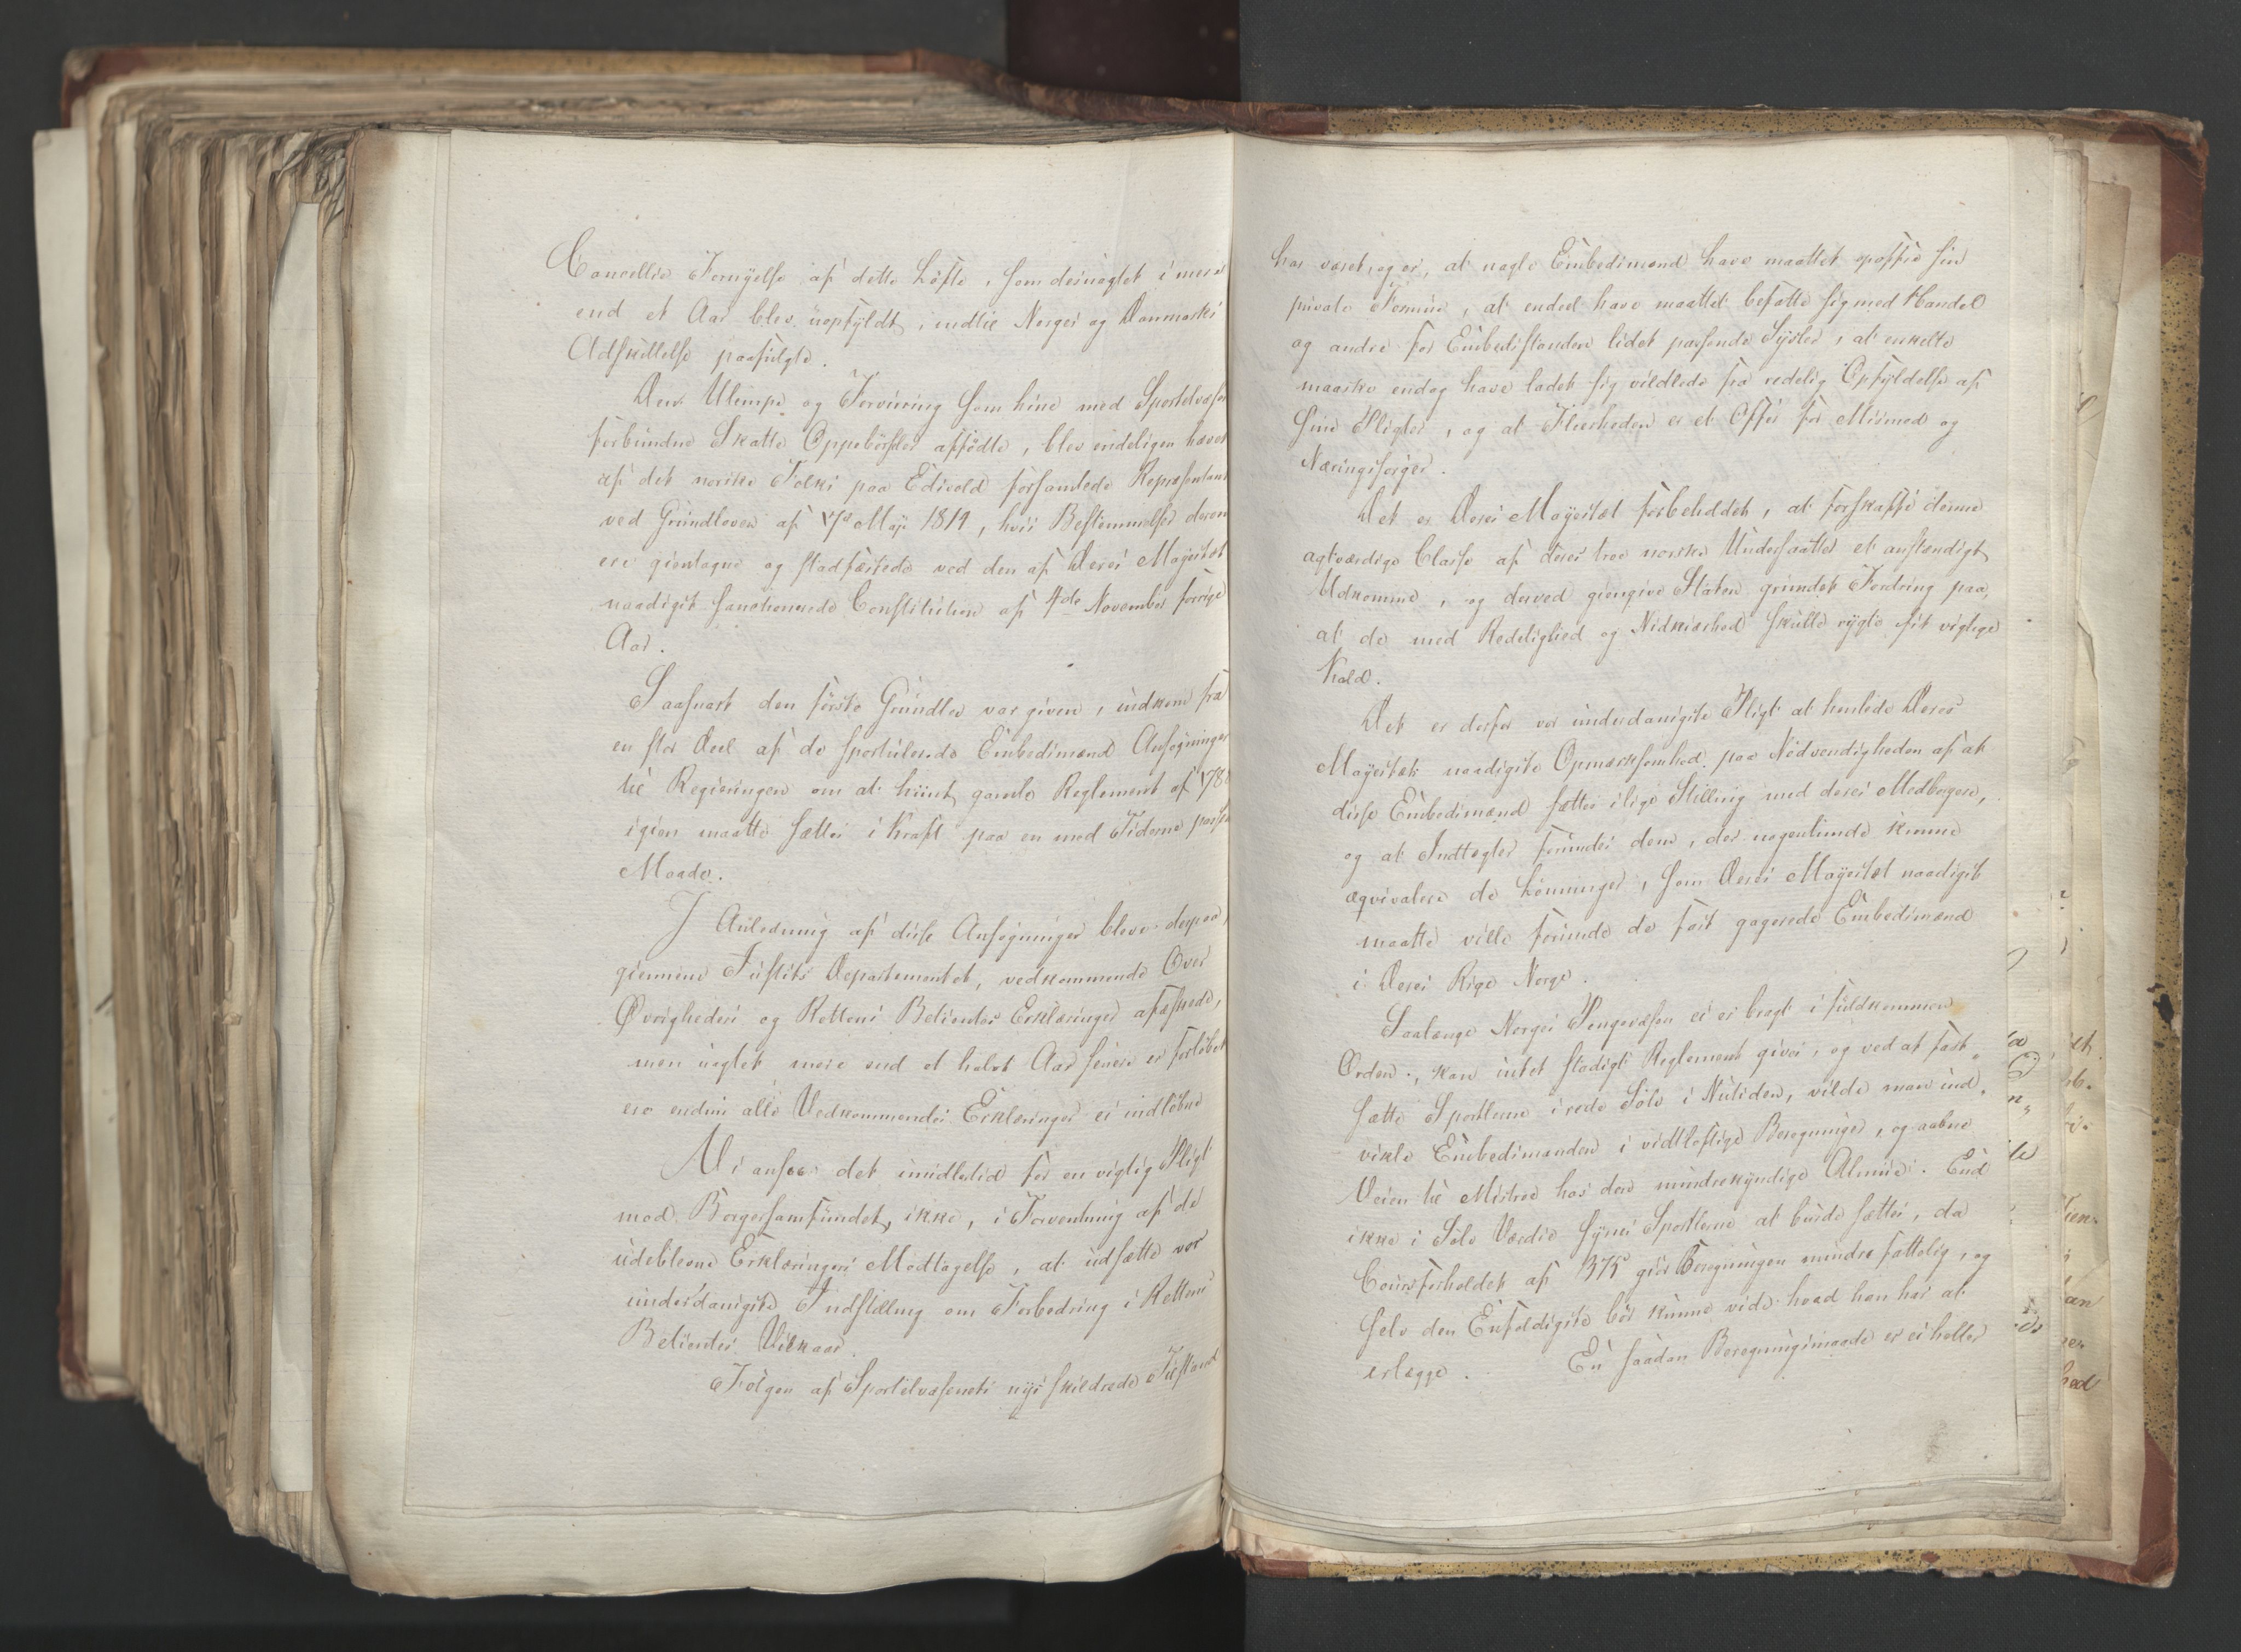 Cancellie Fornyelse af dette Löfte, som desuagtet i mere
end et Aar blev uopfyldt, indtil Norges og Danmarks
Adskillelse paafulgte.
Den Ulempe og Forvirring som hine med Sportelvæsen
forbundne Skatte Oppebörsler affödte, blev endeligen hævet
af det norske Folks paa Edsvold forsamlede Repræsentant
ved Grundloven af 17de Maji 1814, hvis Bestemmelser deron
ere gientagne og stadfæstede ved den af Deres Majestæt
naadigst sanctionerede Constitution af 4de November forrige
Aar.
Saasnart den förste Grundlov var given, indkom fra
en stor Deel af de sportulerende Embedsmænd Ansögninger
til Regieringen om at hiint gamle Reglement af 178
igien maatte sættes i Kraft paa en med Tiderne passe
Maade.
I Anledning af disse Ansögninger bleve derpaa,
giennem Justits Departementet, vedkommende Over
Øvrigheders og Rettens Betientes Erklæringer afæskede,
men uagtet mere end et halvt Aar senere er forlöbet
ere endnu alle Vedkommendes Erklæringer ei indlöbne
Vi ansee det imidlertid for en vigtig Pligt
mod Borgersamfundet, ikke, i Forventning af de
udeblevne Erklæringers Modtagelse, at udsætte vor
underdanigste Indstilling om Forbedring i Rettens
Betientes Vilkaar.
Fölgen af Sportelvæsenets nys skildrede Tilstand
har været, og er, at nogle Embedsmænd have maattet opoffre sin
private Formue, at endeel have maattet befatte sig med Handel
og andre for Embedsstanden lidet passende Sysler, at enkelte
maaske endog have ladet sig vildlede fra redelig Opfyldelse af
sine Pligter, og at Fleerheden er et Offer for Mismod og
Næringssorger.
Det er Deres Majestæt forbeholdet, at forskaffe denne
agtværdige Classe af deres troe norske Undersaatter et anstændigt
Udkomme, og derved giengive Staten grundet Fordring paa,
at de med Redelighed og Nidkiærhed skulle rygte sit vigtige
Kald.
Det er derfor vor underdanigste Pligt at henlede Deres
Majestæts naadigste Opmærksomhed paa Nödvendigheden af at
disse Embedsmænd sættes i lige Stilling med deres Medborgere,
og at Indtægter forundes dem, der nogenlunde kunne
æqvivalere de Lönninger, som Deres Majestæt naadigst
maatte ville forunde de fast gagerede Embedsmænd
i Deres Rige Norge.
Saalænge Norges Pengevæsen ei er bragt i fuldkommen
Orden, kan intet stadigt Reglement gives, og ved at fast„
sætte Sportlerne i rede Sölv i Nutiden, vilde man ind„
vikle Embedsmanden i vidtlöftige Beregninger, og aabne
Veien til Mistroe hos den mindrekyndige Almue. End
ikke i Sölv Værdie synes Sportlerne at burde sættes, da
Coursforholdet af 375 giör Beregningen mindre fattelig, og
selv den Enfoldigste bör kunne vide hvad han har at
erlægge. En saadan Beregningsmaade er ei heller